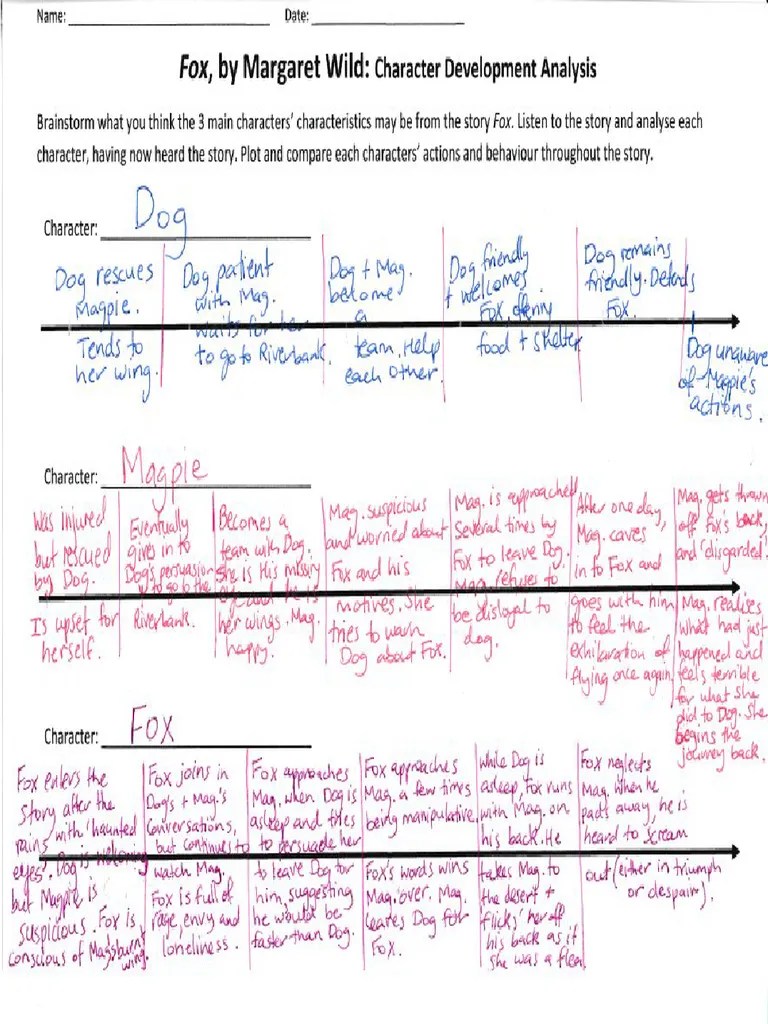 Name: Date:
Fox, by Margaret Wild: Character Development Analysis
Brainstorm what you think the 3 main characters' characteristics may be from the story Fox. Listen to the story and analyse each
character, having now heard the story. Plot and compare each characters' actions and behaviour throughout the story.
Character: Dog
Dog rescues
Magpie.
Tends to
her wing.
Dog patient
with Mag.
waits for her
to go to Riverbank.
Dog + Mag.
become
a
team. Help
each other.
Dog friendly
+ welcomes
Fox, offering
food + shelter
Dog remains
friendly. Defends
Fox.
Dog unaware
of Magpie's
actions.
Character: Magpie
Was injured
but rescued
by Dog.
Is upset for
herself.
Eventually
gives in to
Dog's persuasion
to go to the
Riverbank.
Becomes a
team with Dog.
She is His missing
eye and he is
her wings. Mag.
happy.
Mag. suspicious
and worried about
Fox and his
motives. She
tries to warn
Dog about Fox.
Mag. is approached
several times by
Fox to leave Dog.
Mag. refuses to
be disloyal to
dog.
After one day,
Mag. caves
in to Fox and
goes with him
to feel the
exhilaration of
flying once again
Mag. gets thrown
off Fox's back,
and 'disgarded'.
Mag. realises
what had just
happened and
feels terrible
for what she
did to Dog. She
begins the
journey back.
Character: Fox
Fox enters the
story after the
rains with 'haunted
eyes'. Dog is welcoming
but Magpie is
suspicious. Fox is
conscious of Mags burnt
wing.
Fox joins in
Dog's + Mag.'s
conversations,
but continues to
watch Mag.
Fox is full of
rage, envy and
loneliness.
Fox approaches
Mag. when Dog is
asleep and tries
to persuade her
to leave Dog for
him, suggesting
he would be
faster than Dog.
Fox approaches
Mag. a few times
being manipulative
Fox's words wins
Mag. over. Mag.
leaves Dog for
Fox.
While Dog is
asleep, Fox runs
with Mag. on
his back. He
takes Mag. to
the desert +
'flicks' her off
his back as if
she was a flea.
Fox neglects
Mag. When he
pads away, he is
heard to scream
out (either in triumph
or despair).